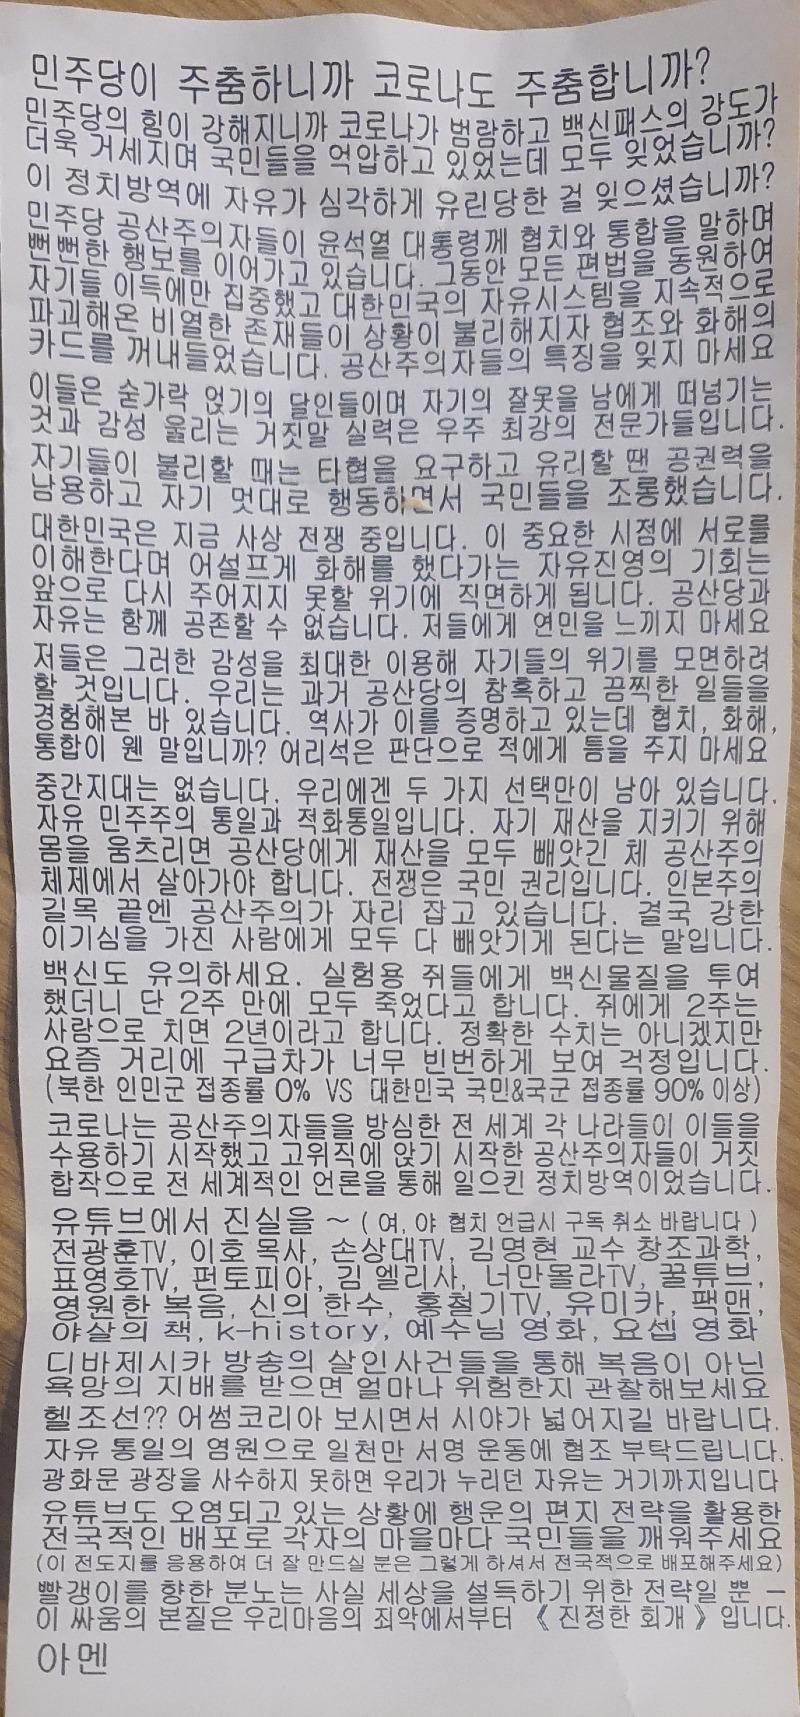 민주당이 주춤하니까 코로나도 주춤합니까?
민주당의 힘이 강해지니까 코로나가 범람하고 백신패스의 강도가
더욱 거세지며 국민들을 억압하고 있었는데 모두 잊었습니까?
이 정치방역에 자유가 심각하게 유린당한 걸 잊으셨습니까?
민주당 공산주의자들이 윤석열 대통령께 협치와 통합을 말하며
뻔뻔한 행보를 이어가고 있습니다. 그동안 모든 편법을 동원하여
자기들 이득에만 집중했고 대한민국의 자유시스템을 지속적으로
파괴해온 비열한 존재들이 상황이 불리해지자 협조와 화해의
카드를 꺼내들었습니다. 공산주의자들의 특징을 잊지 마세요
이들은 숟가락 얹기의 달인들이며 자기의 잘못을 남에게 떠넘기는
것과 감성 울리는 거짓말 실력은 우주 최강의 전문가들입니다.
자기들이 불리할 때는 타협을 요구하고 유리할 땐 공권력을
남용하고 자기 멋대로 행동하면서 국민들을 조롱했습니다.
대한민국은 지금 사상 전쟁 중입니다. 이 중요한 시점에 서로를
이해한다며 어설프게 화해를 했다가는 자유진영의 기회는
앞으로 다시 주어지지 못할 위기에 직면하게 됩니다. 공산당과
자유는 함께 공존할 수 없습니다. 저들에게 연민을 느끼지 마세요
저들은 그러한 감성을 최대한 이용해 자기들의 위기를 모면하려
할 것입니다. 우리는 과거 공산당의 참혹하고 끔찍한 일들을
경험해본 바 있습니다. 역사가 이를 증명하고 있는데 협치, 화해,
통합이 웬 말입니까? 어리석은 판단으로 적에게 틈을 주지 마세요
중간지대는 없습니다. 우리에겐 두 가지 선택만이 남아 있습니다.
자유 민주주의 통일과 적화통일입니다. 자기 재산을 지키기 위해
몸을 움츠리면 공산당에게 재산을 모두 빼앗긴 체 공산주의
체제에서 살아가야 합니다. 전쟁은 국민 권리입니다. 인본주의
길목 끝엔 공산주의가 자리 잡고 있습니다. 결국 강한
이기심을 가진 사람에게 모두 다 빼앗기게 된다는 말입니다.
백신도 유의하세요. 실험용 쥐들에게 백신물질을 투여
했더니 단 2주 만에 모두 죽었다고 합니다. 쥐에게 2주는
사람으로 치면 2년이라고 합니다. 정확한 수치는 아니겠지만
요즘 거리에 구급차가 너무 빈번하게 보여 걱정입니다.
(북한 인민군 접종률 0% VS 대한민국 국민&국군 접종률 90% 이상)
코로나는 공산주의자들을 방심한 전 세계 각 나라들이 이들을
수용하기 시작했고 고위직에 앉기 시작한 공산주의자들이 거짓
합작으로 전 세계적인 언론을 통해 일으킨 정치방역이었습니다.
유튜브에서 진실을 ~ ( 여, 야 협치 언급시 구독 취소 바랍니다 )
전광훈TV, 이호 목사, 손상대TV, 김명현 교수 창조과학,
표영호TV, 펀토피아, 김 엘리사, 너만몰라TV, 꿀튜브,
영원한 복음, 신의 한수, 홍철기TV, 유미카, 팩맨,
야살의 책, k-history, 예수님 영화, 요셉 영화
디바제시카 방송의 살인사건들을 통해 복음이 아닌
욕망의 지배를 받으면 얼마나 위험한지 관찰해보세요
헬조선?? 어썸코리아 보시면서 시야가 넓어지길 바랍니다.
자유 통일의 염원으로 일천만 서명 운동에 협조 부탁드립니다.
광화문 광장을 사수하지 못하면 우리가 누리던 자유는 거기까지입니다
유튜브도 오염되고 있는 상황에 행운의 편지 전략을 활용한
전국적인 배포로 각자의 마을마다 국민들을 깨워주세요
(이 전도지를 응용하여 더 잘 만드실 분은 그렇게 하셔서 전국적으로 배포해주세요)
빨갱이를 향한 분노는 사실 세상을 설득하기 위한 전략일 뿐 –
이 싸움의 본질은 우리마음의 죄악에서부터 《 진정한 회개 》입니다.
아멘